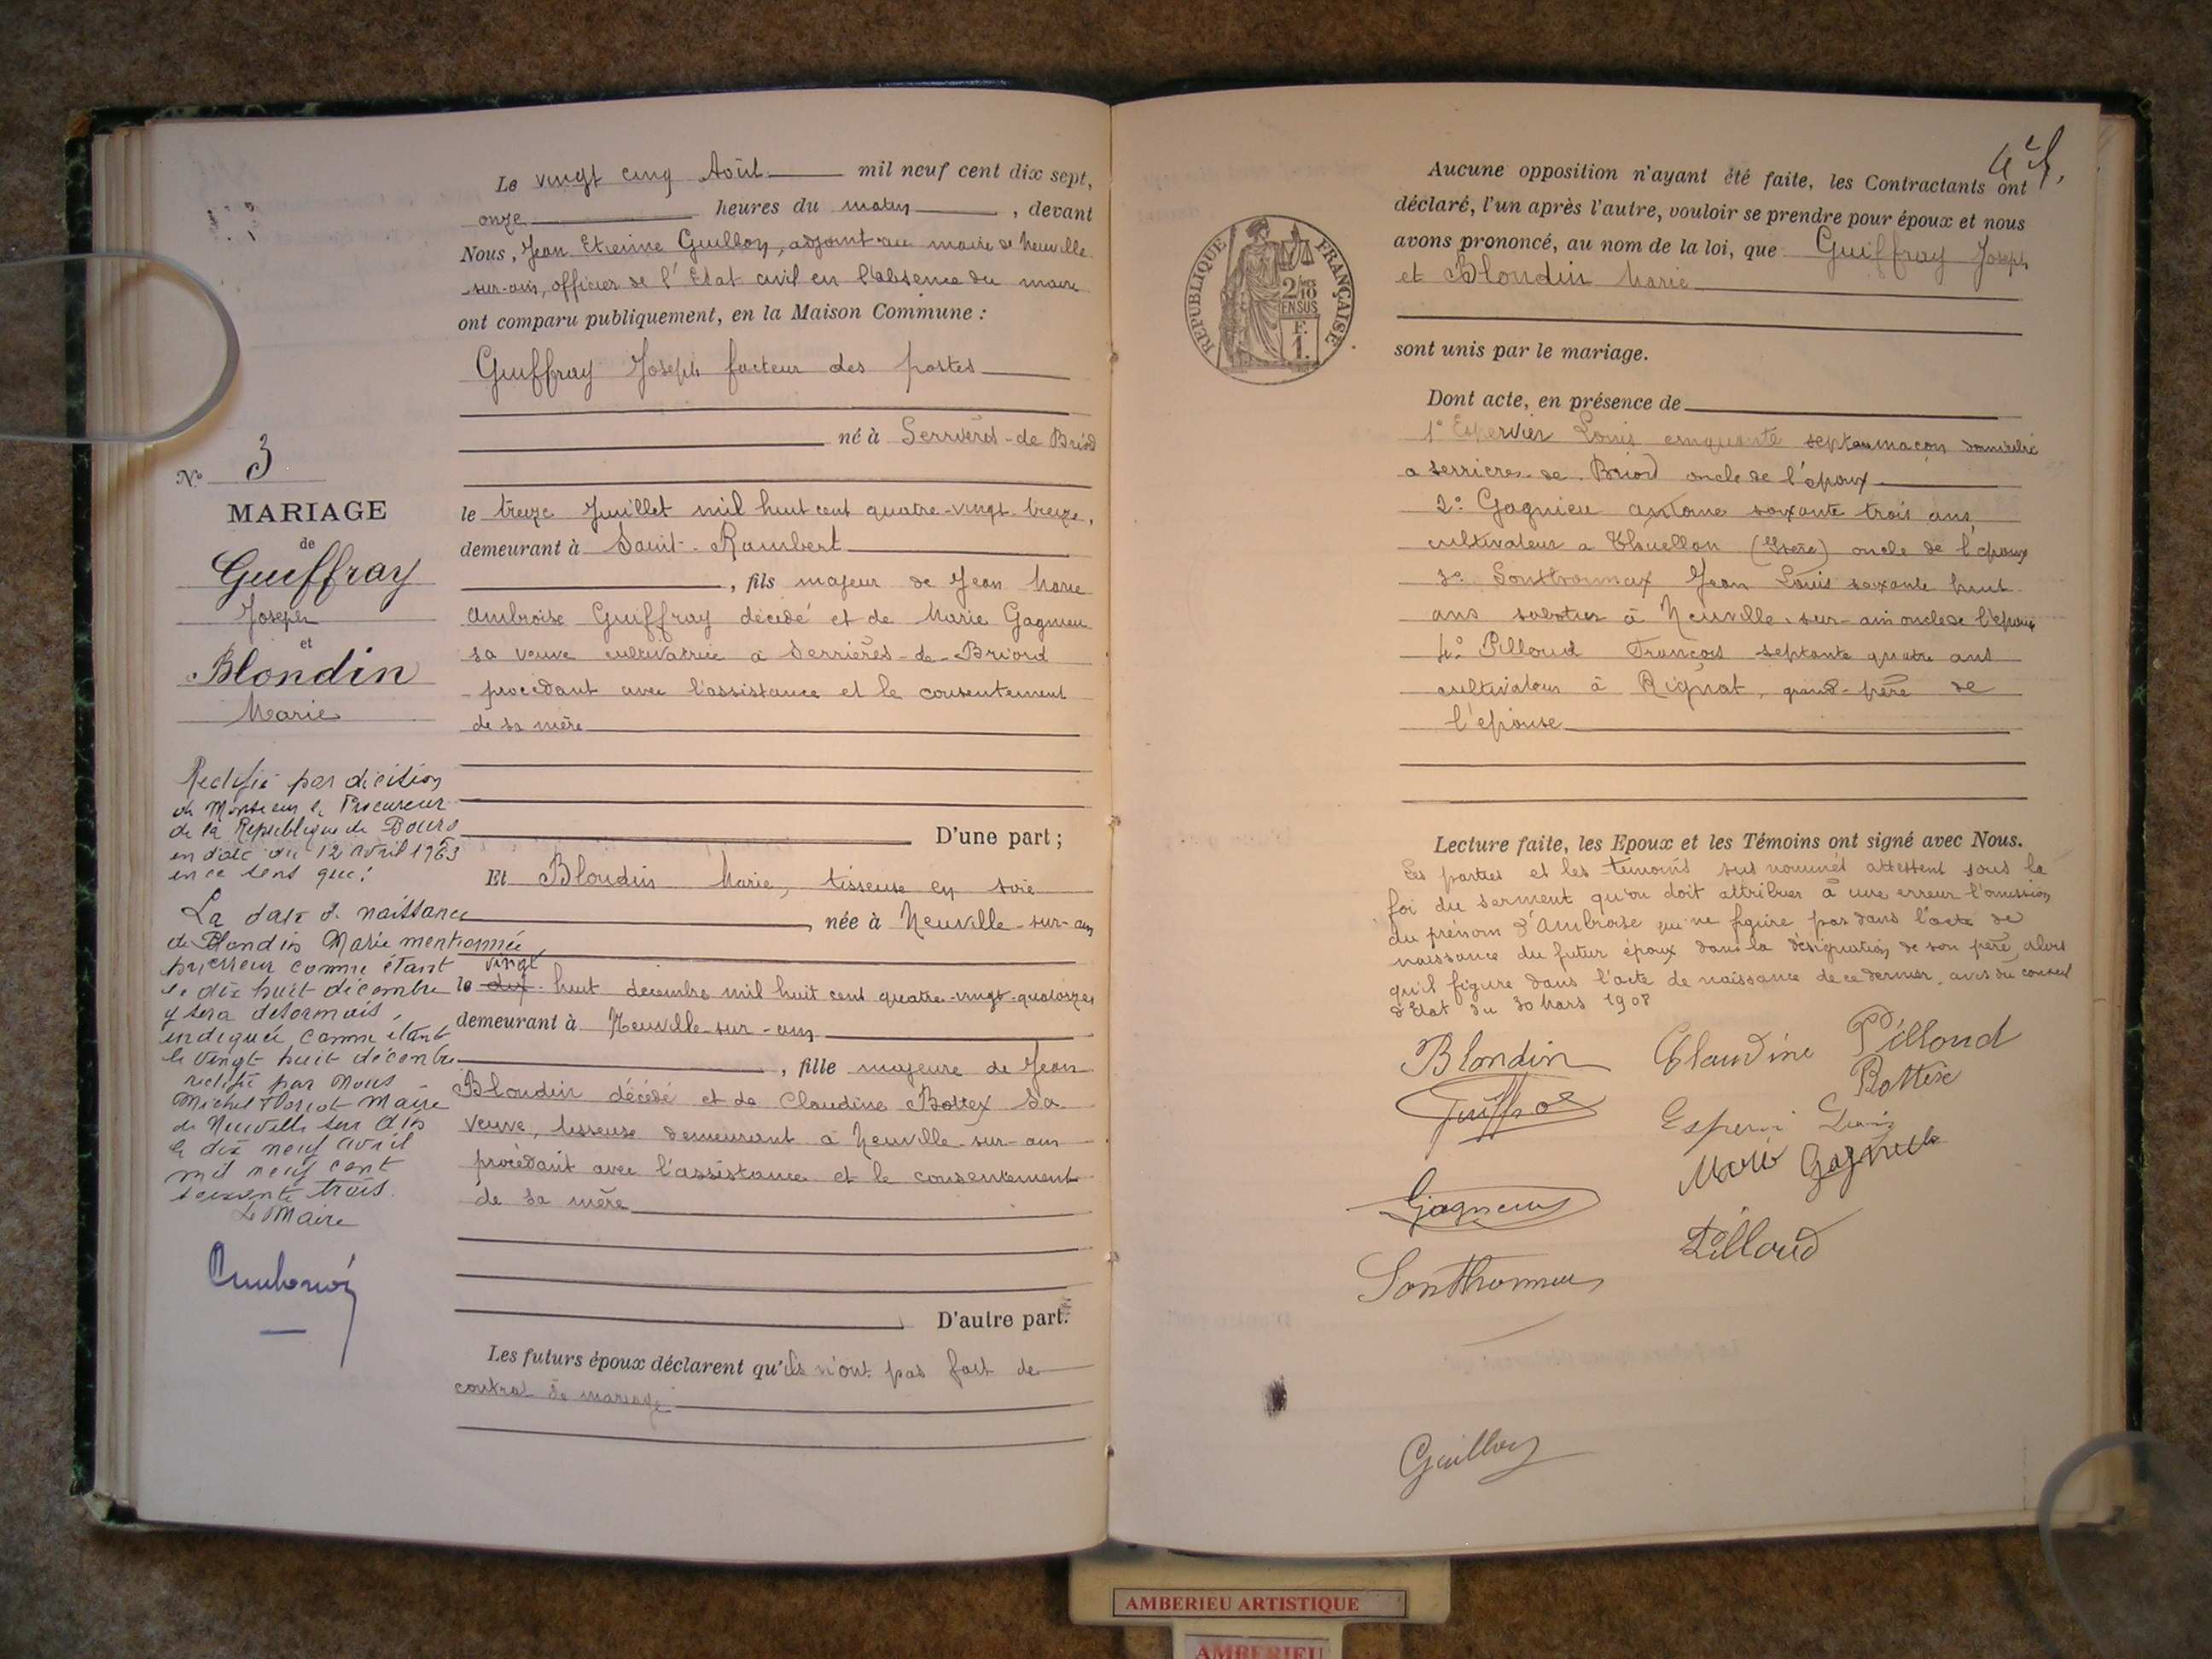 Le vingt cinq Août mil neuf cent dix sept,
onze heures du matin, devant
Nous, Jean Etienne Guillon, adjoint au maire de Neuville
-sur-ain, officier de l'Etat civil en l'absence du maire
ont comparu publiquement, en la Maison Commune :
Guiffray Joseph facteur des postes
né à Serrières-de Briord
le treize Juillet mil huit cent quatre-vingt-treize,
demeurant à Saint-Rambert
, fils majeur de Jean Marie
Ambroise Guiffray décédé et de Marie Gagnieu
sa veuve cultivatrice à Serrières-de-Briord
procédant avec l'assistance et le consentement
de sa mère
D'une part ;
Et Blondin Marie, tisseuse en soie
née à Neuville-sur-ain
vingt
le dix-huit décembre mil huit cent quatre-vingt-quatorze
demeurant à Neuville-sur-ain
, fille majeure de Jean
Blondin décédé et de Claudine Bottex sa
veuve, tisseuse demeurant à Neuville-sur-ain
procédant avec l'assistance et le consentement
de sa mère
D'autre part.
Les futurs époux déclarent qu'ils n'ont pas fait de
contrat de mariage
N° 3
MARIAGE
de
Guiffray
Joseph
et
Blondin
Marie
Rectifié par décision
de Monsieur le Procureur
de la République de Bourg
en date du 12 avril 1963
en ce sens que :
La date de naissance
de Blondin Marie mentionnée
comme étant
le dix huit décembre
y sera désormais
indiquée comme étant
le vingt huit décembre
rectifié par nous
Michel Maire
de Neuville sur Ain
le dix neuf avril
mil neuf cent
soixante trois.
Le Maire
REPUBLIQUE FRANÇAISE
2/10
EN SUS
F.
1.
Aucune opposition n'ayant été faite, les Contractants ont
déclaré, l'un après l'autre, vouloir se prendre pour époux et nous
avons prononcé, au nom de la loi, que Guiffray Joseph
et Blondin Marie
sont unis par le mariage.
Dont acte, en présence de
1° Espervier Louis cinquante sept ans maçon domicilié
a serrieres-de-Briord oncle de l'époux
2° Gagnieu antoine soixante trois ans,
cultivateur a Thuellon (Isère) oncle de l'époux
3° Sonthonnax Jean Louis soixante huit
ans sabotier à Neuville-sur-ain oncle de l'épouse
4° Pilloud François septante quatre ans
cultivateur à Rignat, grand-père de
l'épouse
Lecture faite, les Epoux et les Témoins ont signé avec Nous.
Les parties et les témoins sus nommés attestent sous la
foi du serment qu'on doit attribuer à une erreur l'omission
du prénom d'Ambroise qui ne figure pas dans l'acte de
naissance du futur époux dans la désignation de son père alors
qu'il figure dans l'acte de naissance de ce dernier, avis du conseil
d'Etat du 30 Mars 1908
Blondin Claudine Pilloud
Bottex
Guiffray
Marie Gagnieu
Gagnieu
Pilloud
Sonthonnax
Guillon
AMBERIEU ARTISTIQUE
AMBERIEU